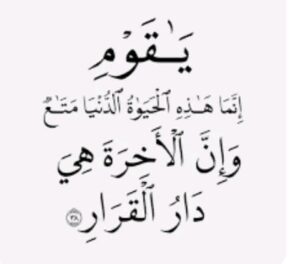 يَٰقَوْمِ
إِنَّمَا هَٰذِهِ الْحَيَوٰةُ الدُّنْيَا مَتَٰعٌ
وَإِنَّ الْأَخِرَةَ هِيَ
دَارُ الْقَرَارِ ۝٣٨